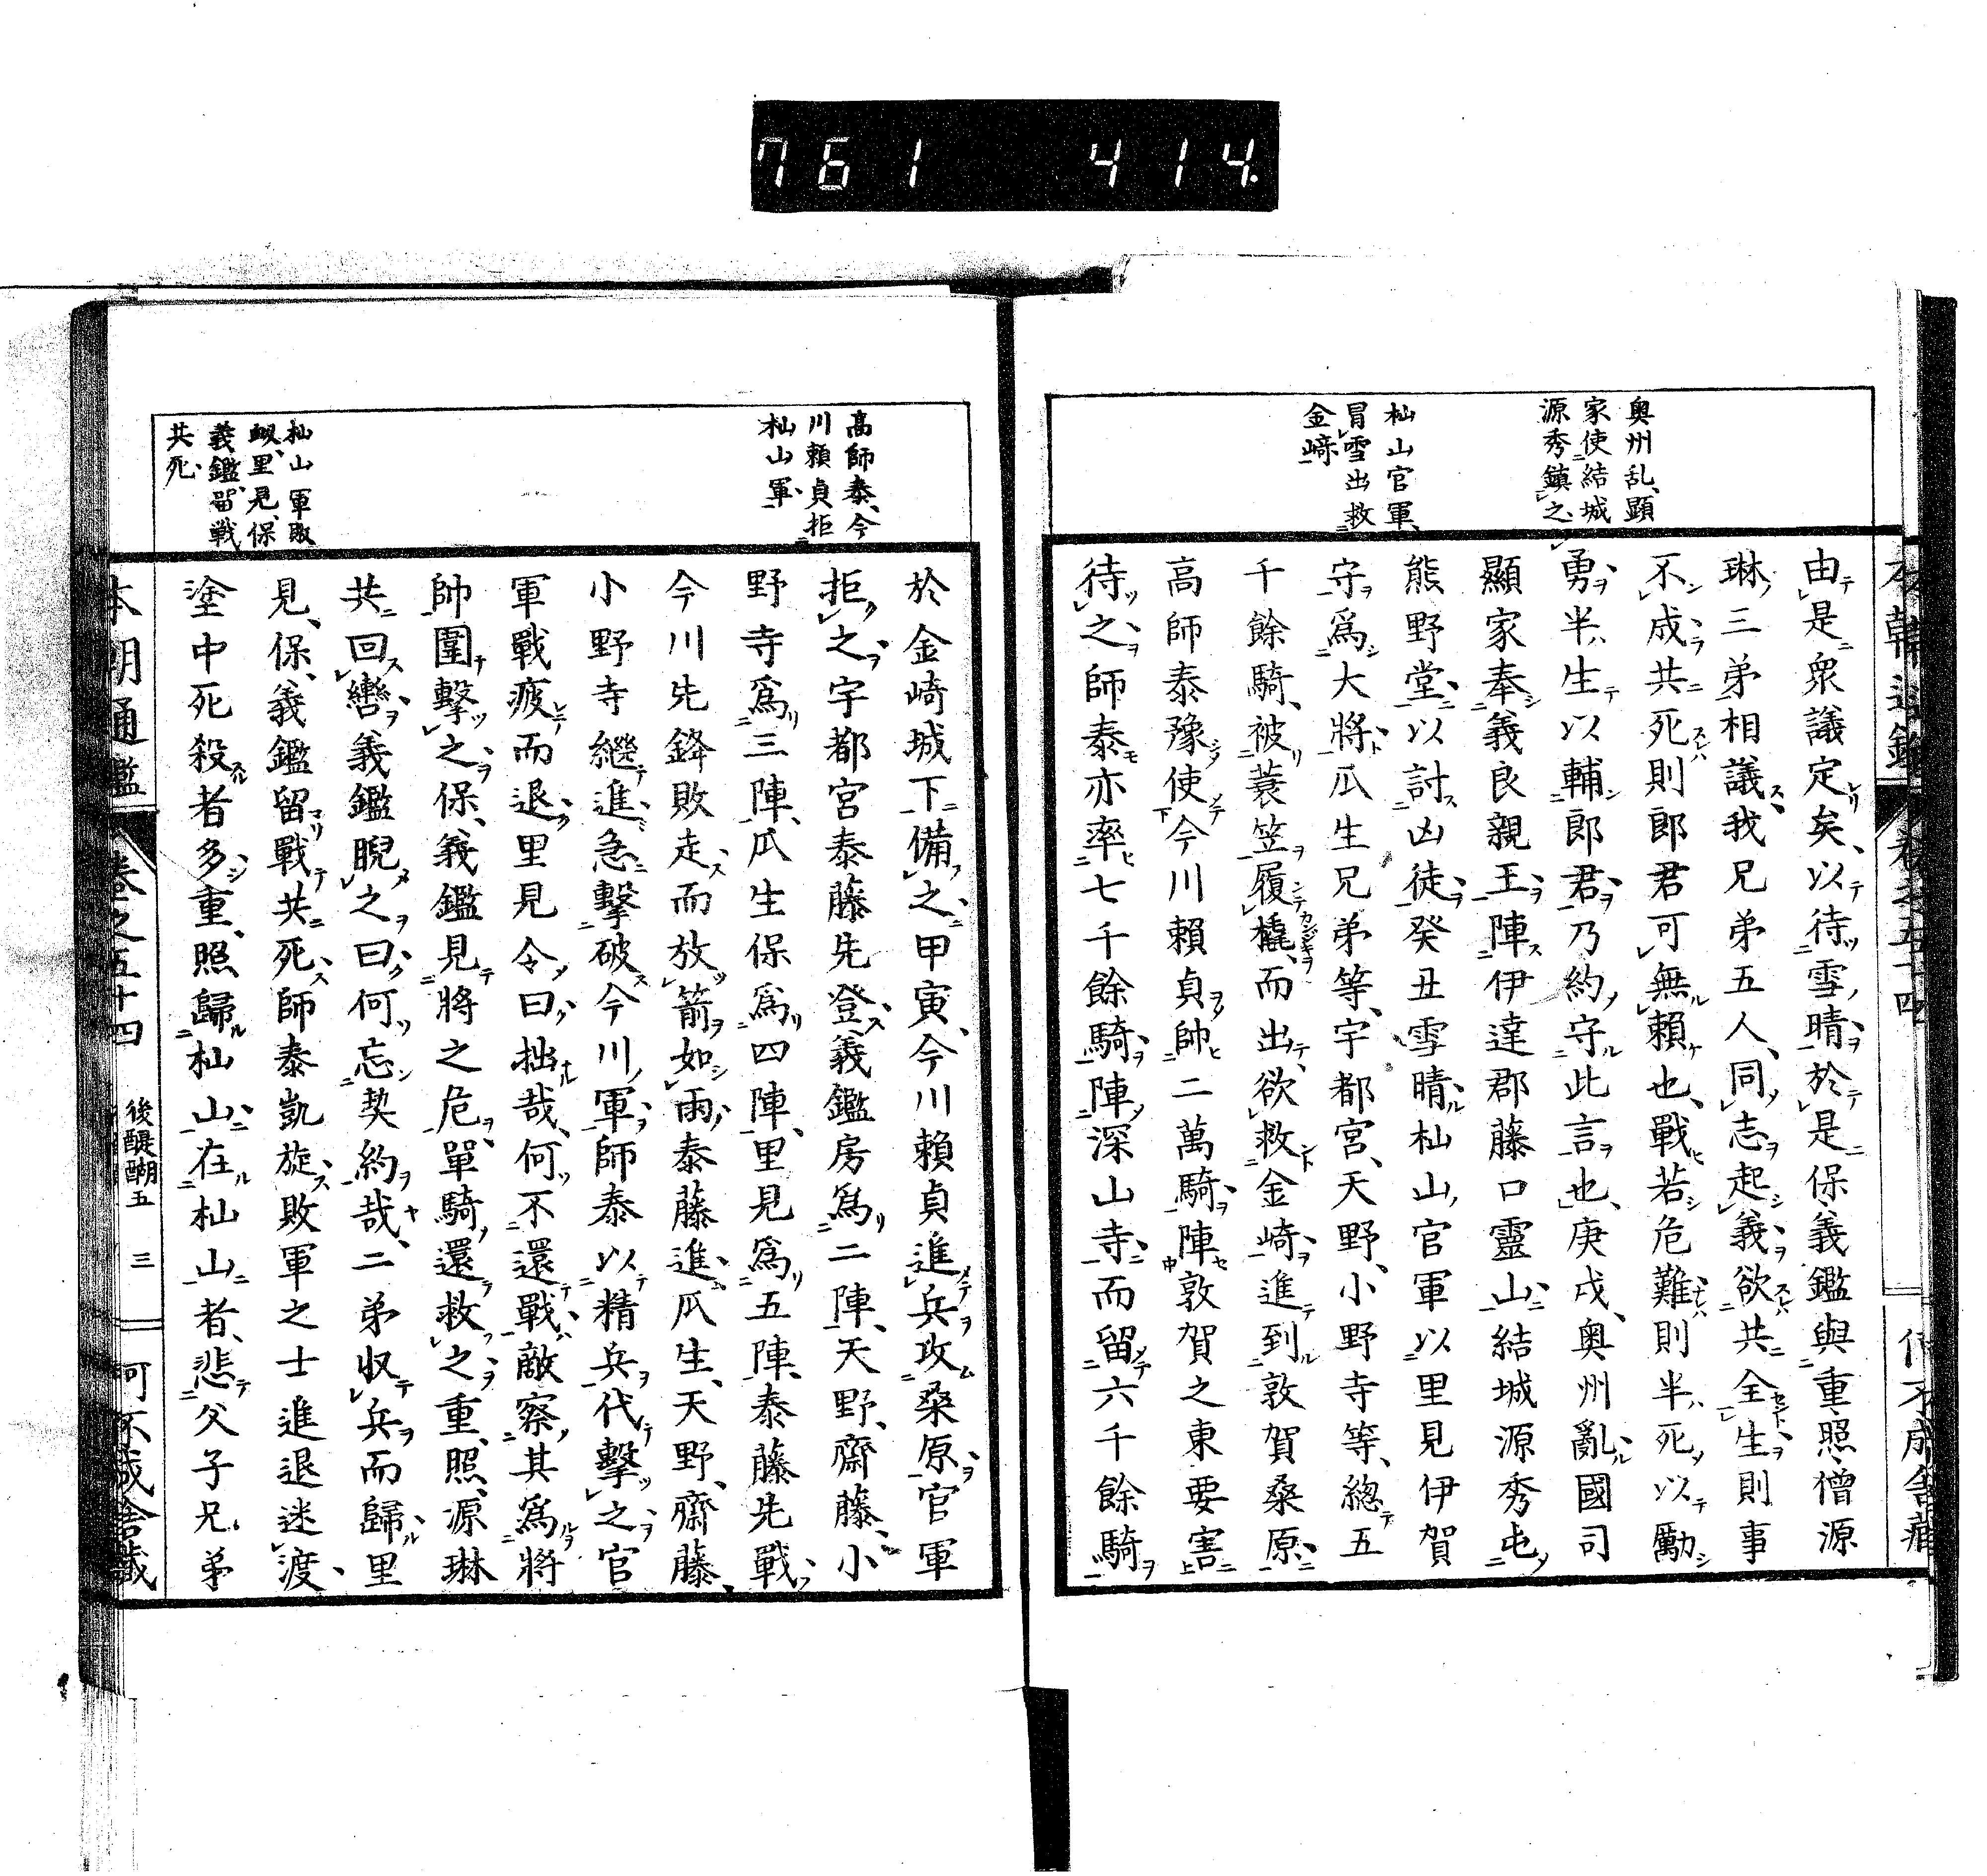 761 414.
奥州乱、顕
家使結城
源秀鎮之
杣山官軍、
冒雪出救
金﨑
由是衆議定矣、以待雪晴於是保義鑑與重照僧源
琳三弟相議我兄弟五人、同志起義欲共全生則事
不成共死則郎君可無賴也、戰若危難則半死以勵
勇半生以輔郎君乃約守此言也、庚戌、奥州亂國司
顯家奉義良親王陣伊達郡藤口靈山結城源秀屯
熊野堂以討凶徒癸丑雪晴杣山官軍以里見伊賀
守爲大將瓜生兄弟等、宇都宮、天野、小野寺等、緫五
千餘騎、被蓑笠履橇、而出、欲救金崎進到敦賀桑原、
高師泰豫使今川賴貞帥二萬騎陣敦賀之東要害
待之師泰亦率七千餘騎陣深山寺而留六千餘騎
高師泰、今
川賴貞拒
杣山軍
杣山軍敗
衂、里見、保
義鑑、留戦
共死
於金崎城下備之、甲寅、今川賴貞進兵攻桑原官軍
拒之宇都宮泰藤先登義鑑房爲二陣、天野、齋藤、小
野寺爲三陣、瓜生保爲四陣、里見爲五陣、泰藤先戰
今川先鋒敗走而放箭如雨泰藤進、瓜生、天野、齋藤、
小野寺繼進急擊破今川軍師泰以精兵代擊之官
軍戰疲而退里見令曰拙哉、何不還戰、敵察其爲將
帥圍擊之保、義鑑見將之危單騎還救之重、照、源琳
共回轡義鑑睨之曰何忘契約哉、二弟収兵而歸里
見、保、義鑑留戰共死師泰凱旋敗軍之士進退迷渡、
塗中死殺者多重、照歸杣山在杣山者、悲父子兄弟
本朝通鑑
卷之五十四
後醍醐五
三